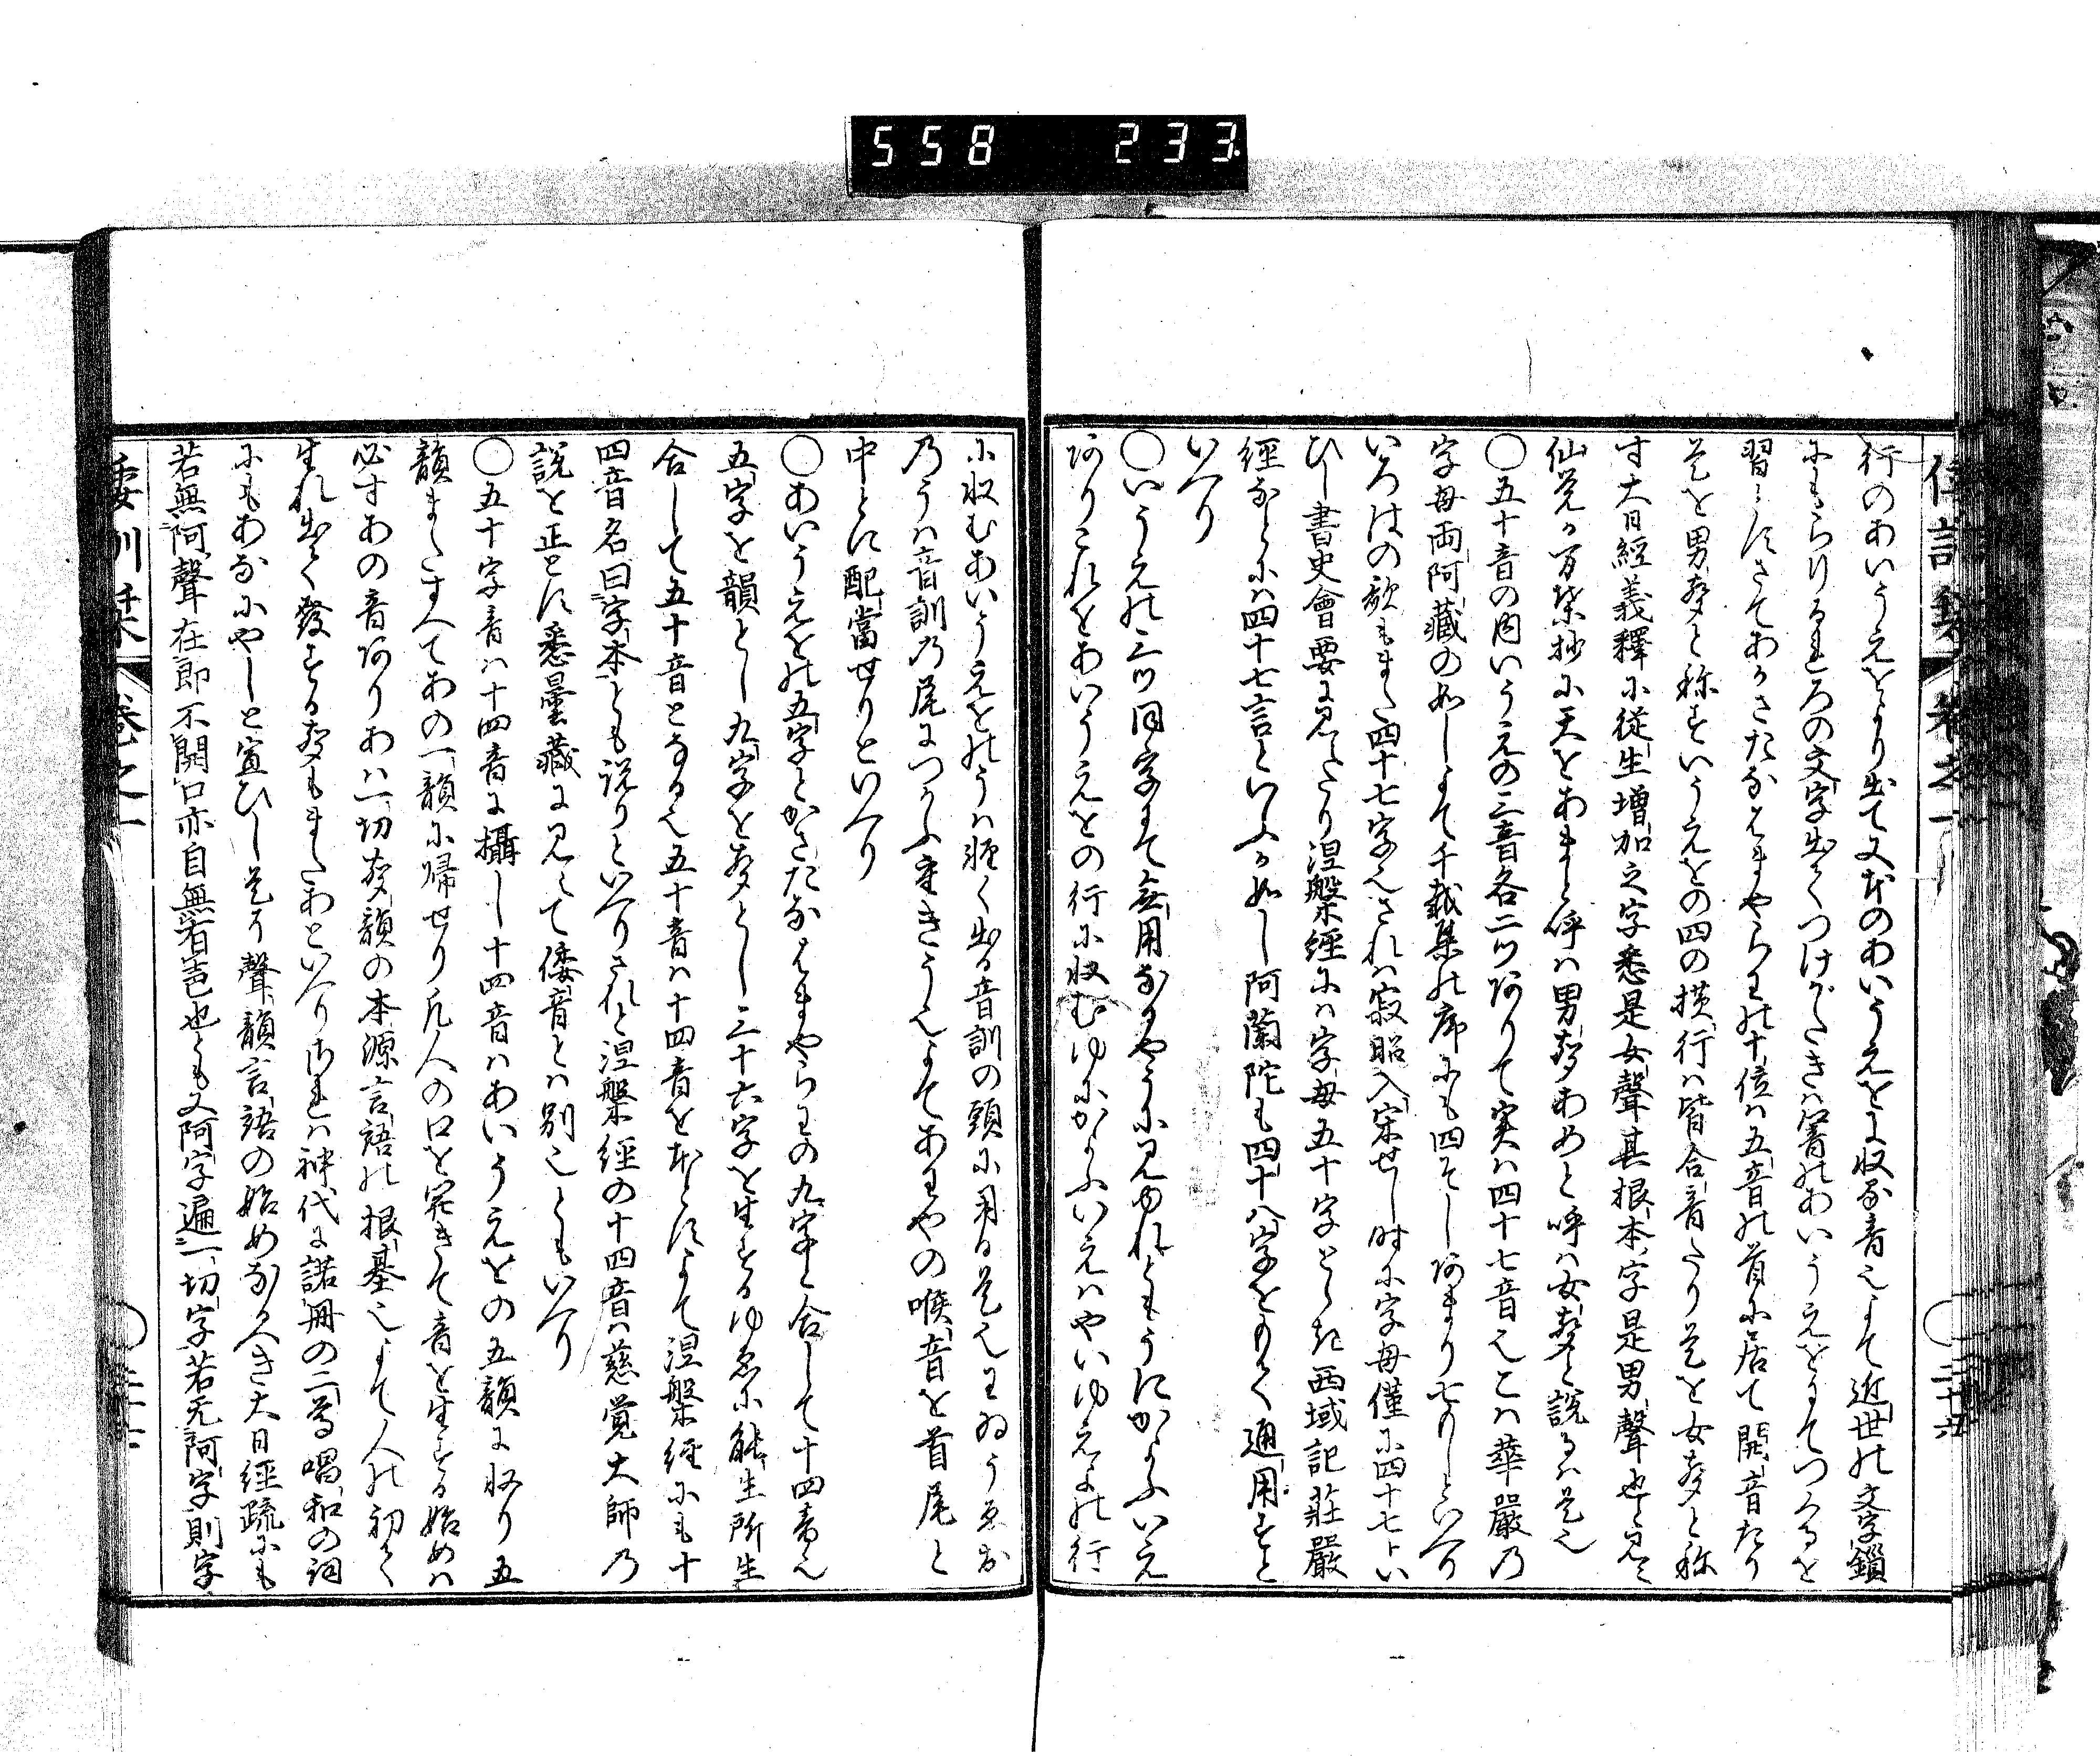 558 233
行のあいうえをより出て又本のあいうえをに収る音也よて近世の文字鎖
にもらりるれろの文字出てつけがたきは署のあいうえをもてつくるを
習とすさてあかさたなはまやらわの十位は五音の首に居て開音たり
是を男聲と称すいうえをの四の横行は皆合音たり是を女聲と称
す大日經義釋に從生增加之字悉是女聲其根本字是男聲也と見ゆ
仙覚か万葉抄に天をあまと呼は男聲あめと呼は女聲と説るは是也
〇五十音の内いうえの三音各二ツありて実は四十七音也こは華嚴乃
字母両阿藏の如しよて千載集の序にも四そしあまり七もしといへり
いろはの歌もまた四十七字也されは寂昭入宋せし時に字母僅に四十七とい
ひし書史會要に見えたり涅槃經には字母五十字とし西域記莊嚴
經なとには四十七言といふか如し阿蘭陀も四十八字をもて通用すと
いへり
〇いうえの三ツ同字にて無用なるやうに見ゆれともうにかよふいえ
ありこれをあいうえをの行に收むゆにかよふいえはやいゆえよの行
に收むあいうえをのうは軽く出る音訓の頭に用る是也わゐうゑお
乃うは音訓乃尾につかふ重きうえ也よてあわやの喉音を首尾と
中とに配當せりといへり
〇あいうえをの五字とかさたなはまやらわの九字と合して十四音也
五字を韻とし九字を聲とし三十六字を生するゆゑに能生所生
合して五十音となる也五十音は十四音を本とすよて涅槃經にも十
四音名曰字本とも説りといへりされと涅槃經の十四音は慈覚大師乃
説を正とす悉曇藏に見えて倭音とは別也ともいへり
〇五十字音は十四音に攝し十四音はあいうえをの五韻に収り五
韻またすへてあの一韻に帰せり凡人の口を開きて音を生する始めは
必すあの音ありあは一切聲韻の本源言語の根基也よて人の初て
生れ出て發する聲もまたあといへりされは神代に諾冊の二尊唱和の詞
にもあなにやしと宣ひし是そ聲韻言語の始めなるへき大日經疏にも
若無阿聲在即不開口亦自無若言也とも又阿字遍一切字若无阿字則字
倭訓栞 卷之一